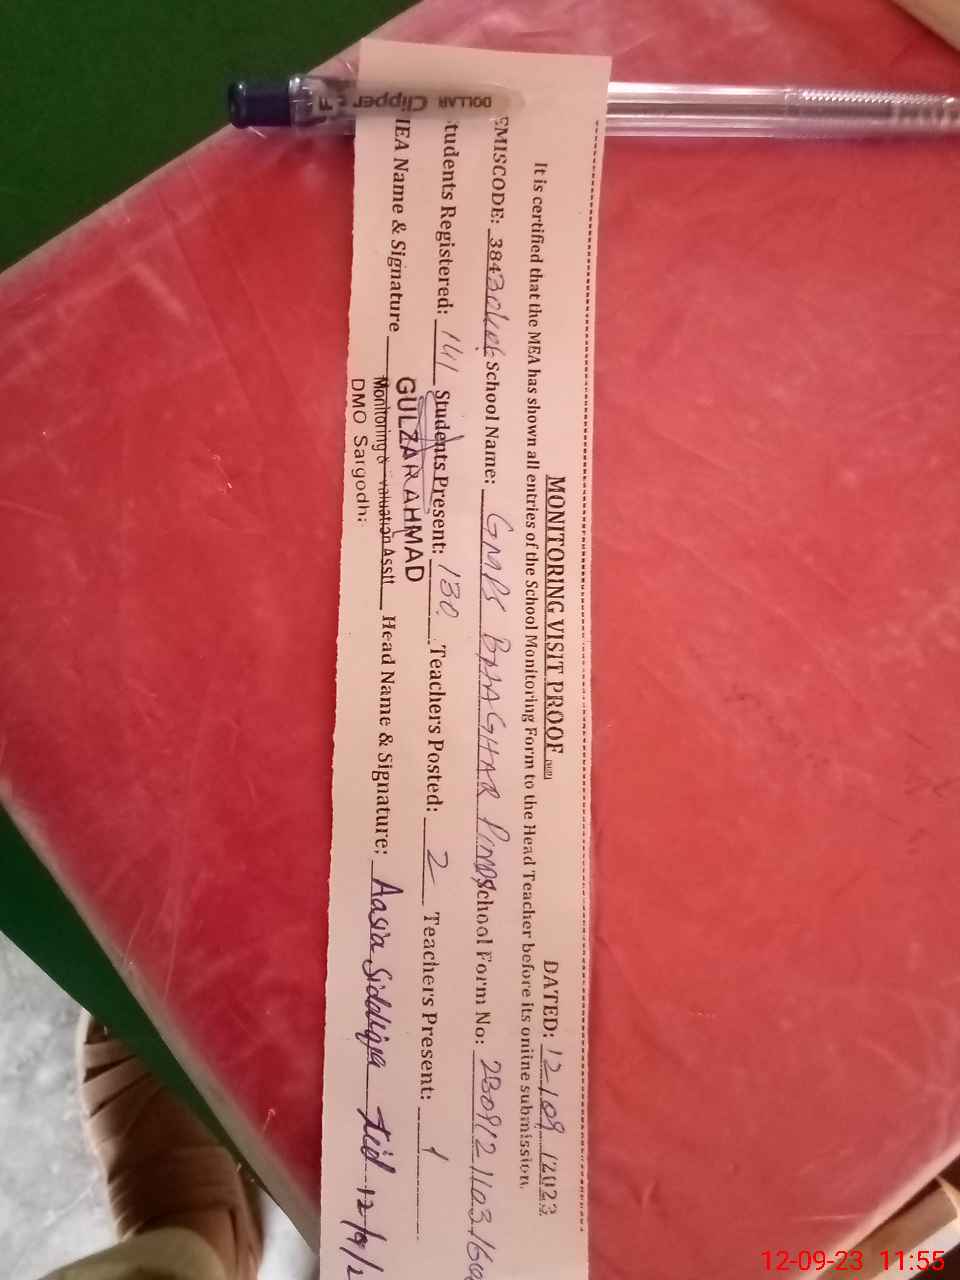 MONITORING VISIT PROOF DATED: 12/09/2023
It is certified that the MEA has shown all entries of the School Monitoring Form to the Head Teacher before its online submission.
EMISCODE: School Name: GMPS BHAGHAR PIND School Form No:
Students Registered: 141 Students Present: 130 Teachers Posted: 2 Teachers Present: 1
MEA Name & Signature GULZAR AHMAD Head Name & Signature: Aasia Siddiqa
Monitoring & Evaluation Asstt
DMO Sargodh
DOLLAR Clipper
12-09-23 11:55